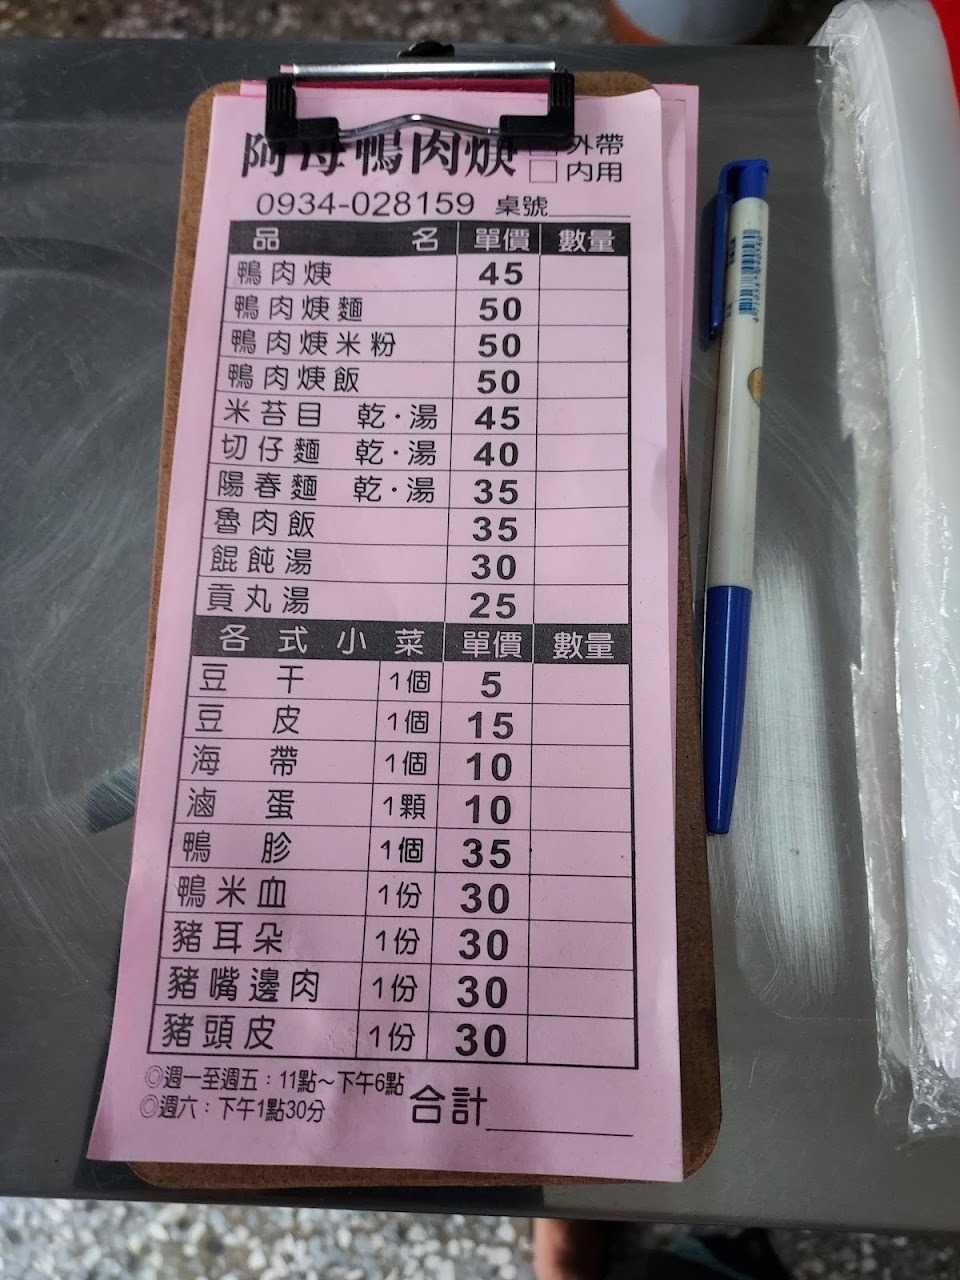 阿母鴨肉焿 □外帶
□內用
0934-028159 桌號
品名 單價 數量
鴨肉焿 45
鴨肉焿麵 50
鴨肉焿米粉 50
鴨肉焿飯 50
米苔目 乾·湯 45
切仔麵 乾·湯 40
陽春麵 乾·湯 35
魯肉飯 35
餛飩湯 30
貢丸湯 25
各式小菜 單價 數量
豆干 1個 5
豆皮 1個 15
海帶 1個 10
滷蛋 1顆 10
鴨胗 1個 35
鴨米血 1份 30
豬耳朵 1份 30
豬嘴邊肉 1份 30
豬頭皮 1份 30
◎週一至週五：11點～下午6點
◎週六：下午1點30分
合計